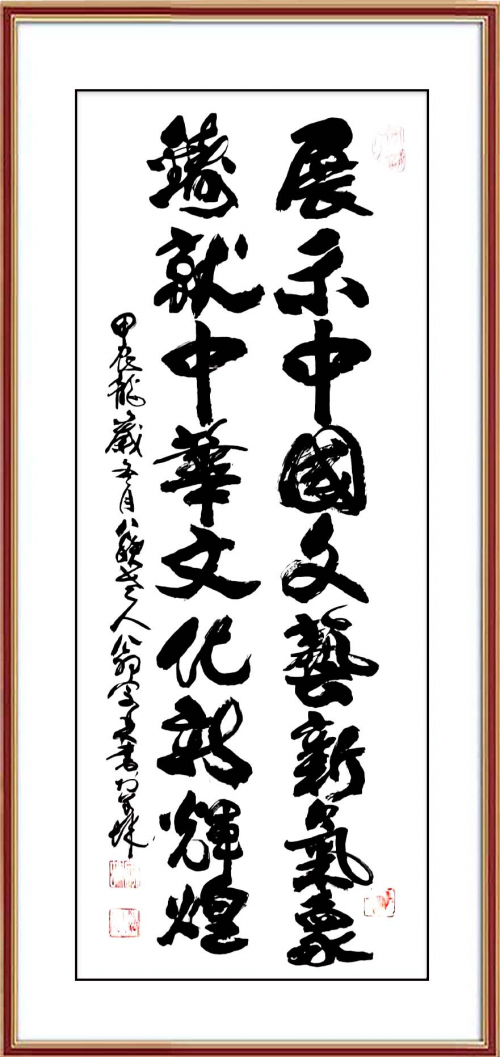 展示中國文藝新氣象
鑄就中華文化新輝煌
甲辰龍歲月八老人翁書於羊城